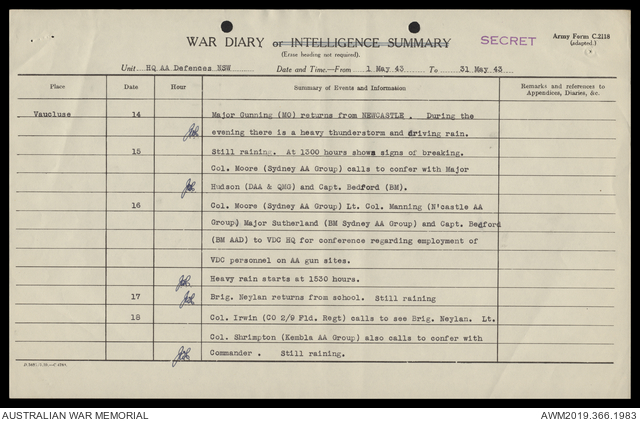 WAR DIARY or INTELLIGENCE SUMMARY
SECRET
Army Form C.2118
(adapted.)
(Erase heading not required).
Unit HQ AA Defences NSW Date and Time—From 1 May 43 To 31 May 43
Place Date Hour Summary of Events and Information Remarks and references to
Appendices, Diaries, &c.
Vaucluse 14 Major Gunning (MO) returns from NEWCASTLE . During the
evening there is a heavy thunderstorm and driving rain.
15 Still raining. At 1300 hours shows signs of breaking.
Col. Moore (Sydney AA Group) calls to confer with Major
Hudson (DAA & QMG) and Capt. Bedford (BM).
16 Col. Moore (Sydney AA Group) Lt. Col. Manning (N'castle AA
Group) Major Sutherland (BM Sydney AA Group) and Capt. Bedford
(BM AAD) to VDC HQ for conference regarding employment of
VDC personnel on AA gun sites.
Heavy rain starts at 1530 hours.
17 Brig. Neylan returns from school. Still raining
18 Col. Irwin (CO 2/9 Fld. Regt) calls to see Brig. Neylan. Lt.
Col. Shrimpton (Kembla AA Group) also calls to confer with
Commander . Still raining.
AUSTRALIAN WAR MEMORIAL
AWM2019.366.1983